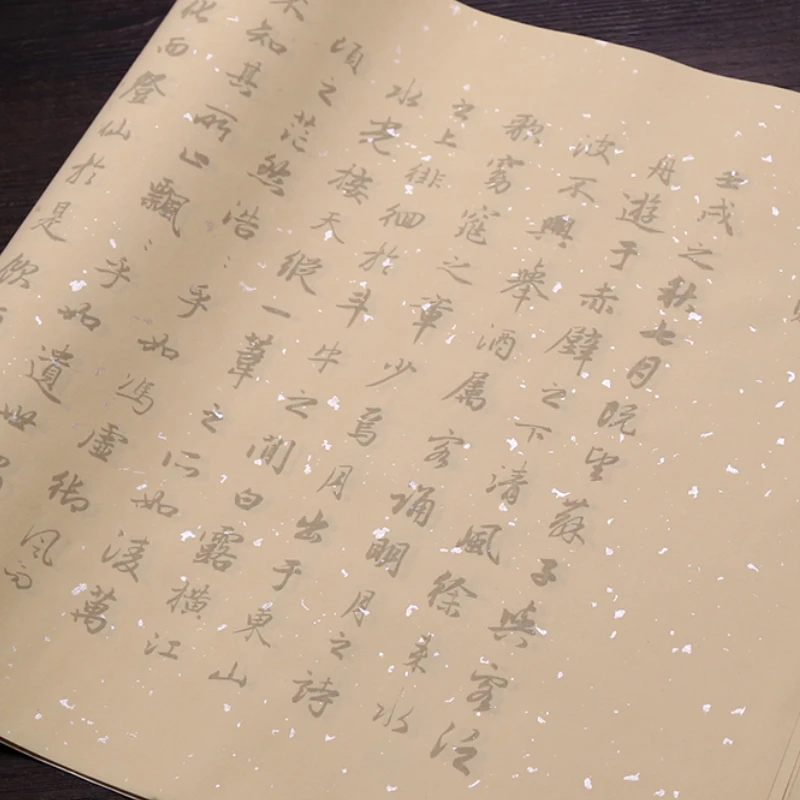 壬戌之秋七月既望蘇子與客泛
舟遊于赤壁之下清風徐來水
波不興舉酒屬客誦明月之詩
歌窈窕之章少焉月出于東山
之上徘徊於斗牛之間白露橫江
水光接天縱一葦之所如凌萬
頃之茫然浩：乎如馮虛御風而
不知其所止飄：乎如遺世
化而登仙於是飲